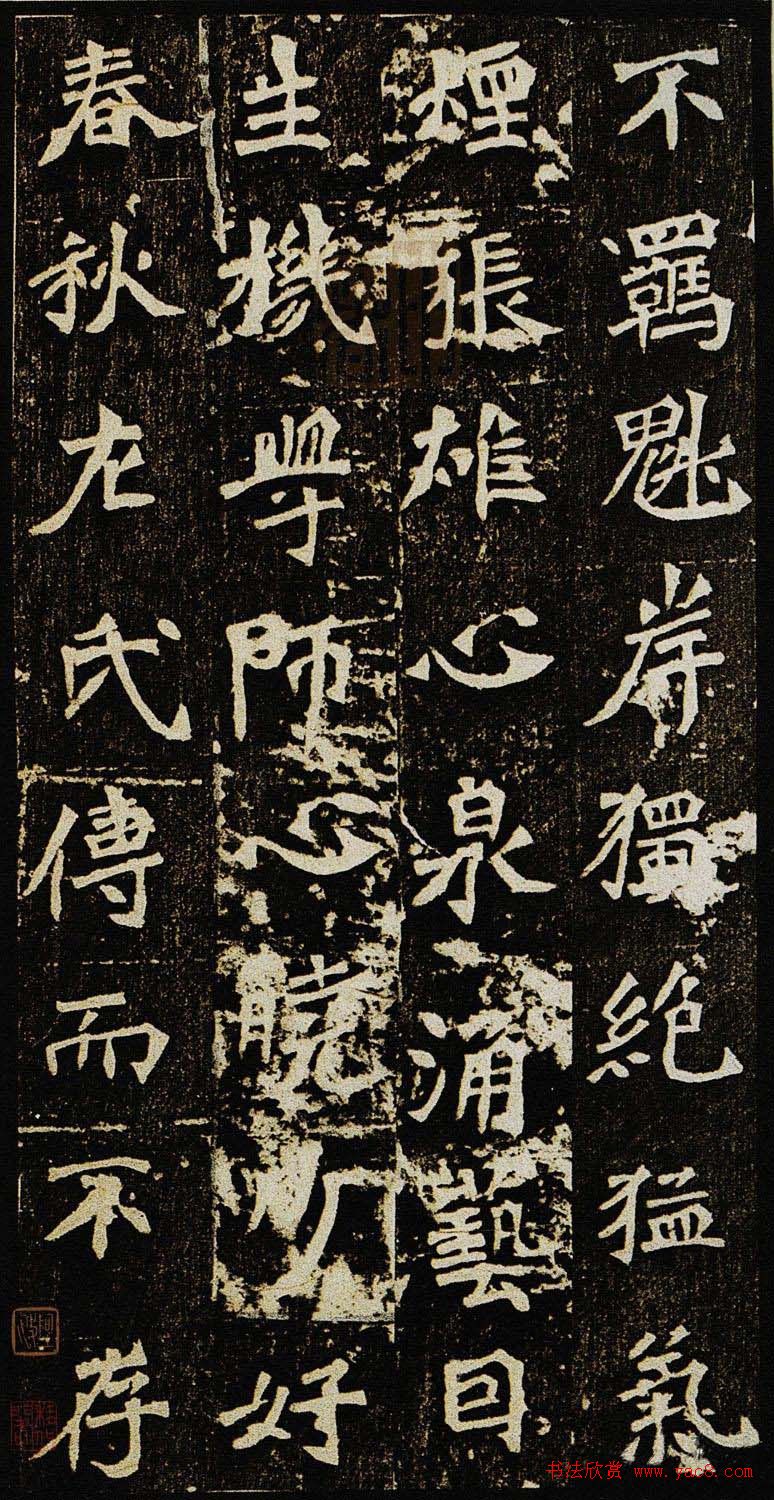 不羈魁岸獨絶猛氣
煙張雄心泉涌藝因
生機學師心曉少好
春秋左氏傳而不存
书法欣赏 www.yac8.com